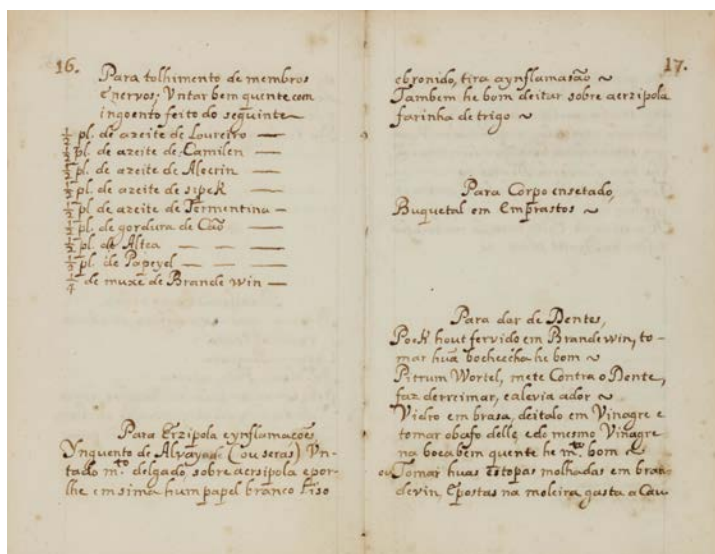 16.
Para tolhimento de membros
Enervos; Vntar bem quente com
ingoento feito do seguinte
1/2 pl. de azeite de Loureiro —
1/2 pl. de azeite de Camilen —
1/2 pl. de azeite de Alecrin —
1/2 pl. de azeite de sipek —
1/2 pl. de azeite de Tormentina —
1/2 pl. de gordura de Cão —
1/2 pl. de Altea — — —
1/2 pl. de Papeyel — — —
1/4 de muxe de Brande win —
Para Erzipola eynflamacoẽs
Ynquento de Alvayade (ou seras) Vn-
tado m.to delgado, sobre aersipola epor-
lhe em sima hum papel branco liso
17.
ebronido, tira aynflamasão ~
Tambem he bom deitar sobre aerzipola
farinha de trigo ~
Para Corpo ensetado,
Buquetal em Emprastos ~
Para dor de Dentes,
Pock hout fervido em Brandewin, to-
mar huã bochecha he bom ~
Pittum Wortel, mete Contra o Dente,
faz derreimar, ealevia ador ~
Vidro em brasa, deitalo em Vinagre e
tomar obafo delle, edo mesmo Vinagre
na boca bem quente he m.to bom ~
ou Tomar huas Estopas molhadas em bran-
devin, Epostas na moleira gasta a Cau-